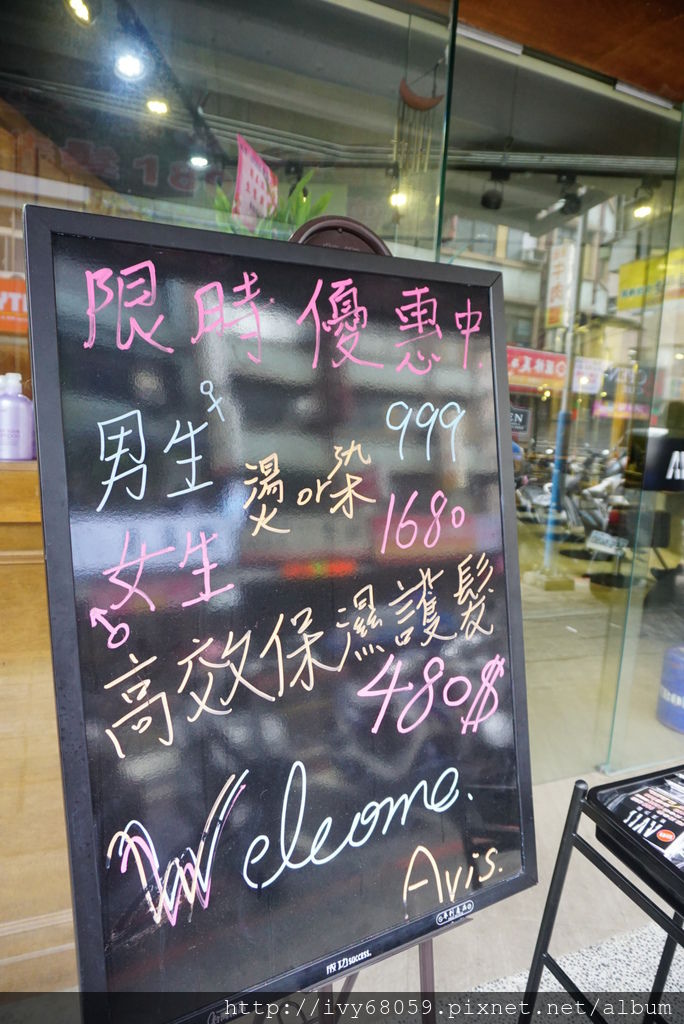 限時優惠中.
男生♀ 999
燙or染
女生♂ 1680
高效保濕護髮
480$
Welcome.
Avis.
成功success.
AVIS
http://ivy68059.pixnet.net/album